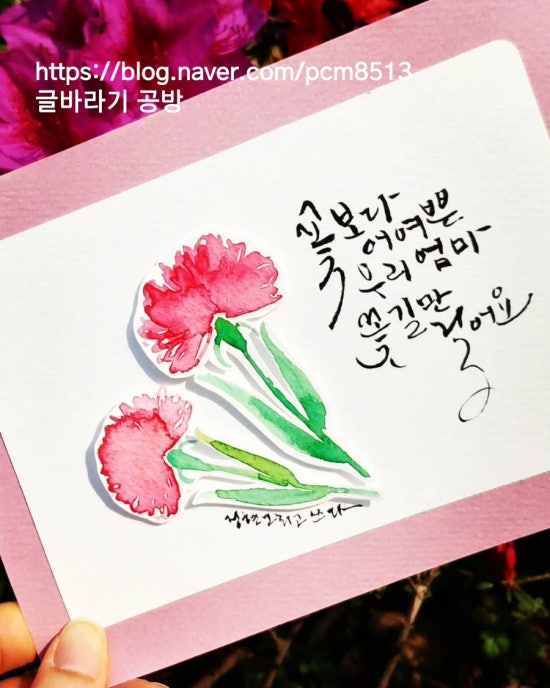 https://blog.naver.com/pcm8513
글바라기 공방
꽃보다
어여쁜
우리 엄마
꽃길만
걸어요
그리고 쓰다